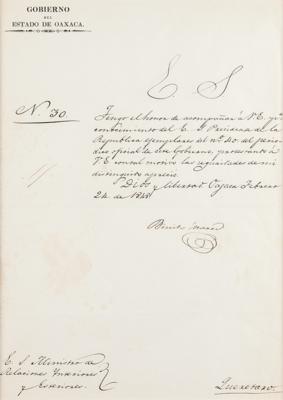 GOBIERNO
DEL
ESTADO DE OAXACA.
E. S
N. 30.
Tengo el honor de acompañar á V.E. pa.
conocimiento del E. S Presidente de la
Republica ejemplares del nº 40. del perio-
dico oficial de este Gobierno, protestando á
V.E con tal motivo las seguridades de mi
distinguido aprecio.
Dios y libertad. Oajaca Febrero
24 de 1848
Benito Juarez
E. S Ministro de
Relaciones Interiores
y Exteriores.
Queretaro.